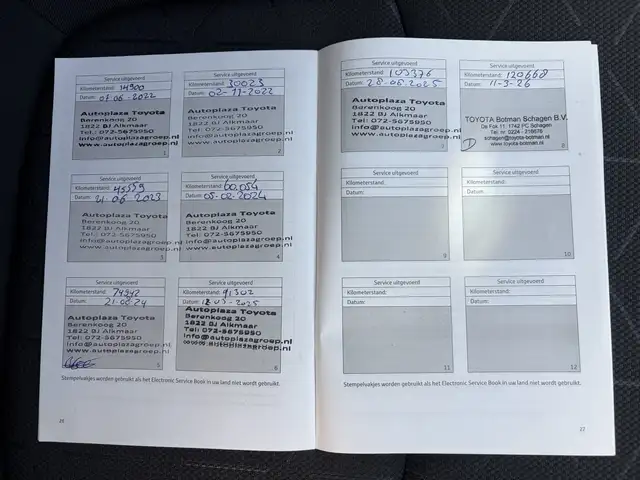 Service uitgevoerd
Kilometerstand: 14900
Datum: 07-06-2022
Autoplaza Toyota
Berenkoog 20
1822 BJ Alkmaar
Tel.: 072-5675950
info@autoplazagroep.nl
www.autoplazagroep.nl
1
Service uitgevoerd
Kilometerstand: 30023
Datum: 02-11-2022
Autoplaza Toyota
Berenkoog 20
1822 BJ Alkmaar
Tel.: 072-5675950
info@autoplazagroep.nl
www.autoplazagroep.nl
2
Service uitgevoerd
Kilometerstand: 45559
Datum: 21-06-2023
Autoplaza Toyota
Berenkoog 20
1822 BJ Alkmaar
Tel.: 072-5675950
info@autoplazagroep.nl
www.autoplazagroep.nl
3
Service uitgevoerd
Kilometerstand: 60.054
Datum: 05-02-2024
Autoplaza Toyota
Berenkoog 20
1822 BJ Alkmaar
Tel.: 072-5675950
info@autoplazagroep.nl
www.autoplazagroep.nl
4
Service uitgevoerd
Kilometerstand: 74942
Datum: 21-08-24
Autoplaza Toyota
Berenkoog 20
1822 BJ Alkmaar
Tel.: 072-5675950
info@autoplazagroep.nl
www.autoplazagroep.nl
5
Service uitgevoerd
Kilometerstand: 91302
Datum: 12-03-2025
Autoplaza Toyota
Berenkoog 20
1822 BJ Alkmaar
Tel: 072-5675950
info@autoplazagroep.nl
6
Stempelvakjes worden gebruikt als het Electronic Service Book in uw land niet wordt gebruikt.
Service uitgevoerd
Kilometerstand: 103376
Datum: 28-08-2025
Autoplaza Toyota
Berenkoog 20
1822 BJ Alkmaar
Tel.: 072-5675950
info@autoplazagroep.nl
www.autoplazagroep.nl
7
Service uitgevoerd
Kilometerstand: 120668
Datum: 11-3-26
TOYOTA Botman Schagen B.V.
De Fok 11, 1742 PC Schagen
Tel. nr. 0224 - 219576
schagen@toyota-botman.nl
www.toyota-botman.nl
8
Service uitgevoerd
Kilometerstand:
Datum:
9
Service uitgevoerd
Kilometerstand:
Datum:
10
Service uitgevoerd
Kilometerstand:
Datum:
11
Service uitgevoerd
Kilometerstand:
Datum:
12
Stempelvakjes worden gebruikt als het Electronic Service Book in uw land niet wordt gebruikt.
22